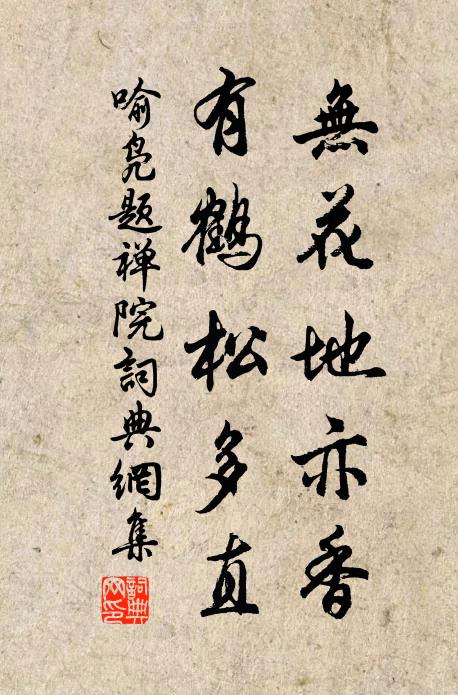 無花地亦香
有鶴松多直
喻凫题禅院詞典網集
詞典